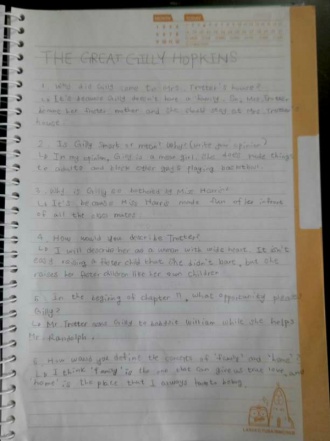 THE GREAT GILLY HOPKINS
1. Why did Gilly come to Mrs. Trotter's house?
↳ It's because Gilly doesn't have a family. So, Mrs. Trotter
became her foster mother and she could stay at Mrs. Trotter
house.
2. Is Gilly smart or mean? Why? (write your opinion)
↳ In my opinion, Gilly is a mean girl. She does mean things
to adults and other guys playing basketball.
3. Why is Gilly so bothered by Miss Harris?
↳ It's because Miss Harris made fun of her in front
of all the class mates.
4. How would you describe Trotter?
↳ I will describe her as a woman with wide heart. It isn't
easy raising a foster child that she didn't have, but she
raises her foster children like her own children.
5. In the beginning of chapter 9, what opportunity
Gilly?
↳ Mr Trotter Gilly to William while she helps
Mr. Randolph.
6. How would you define the concepts of 'family' and 'home'?
↳ I think 'family' is the one that can give us true love, and
'home' is the place that I always being.